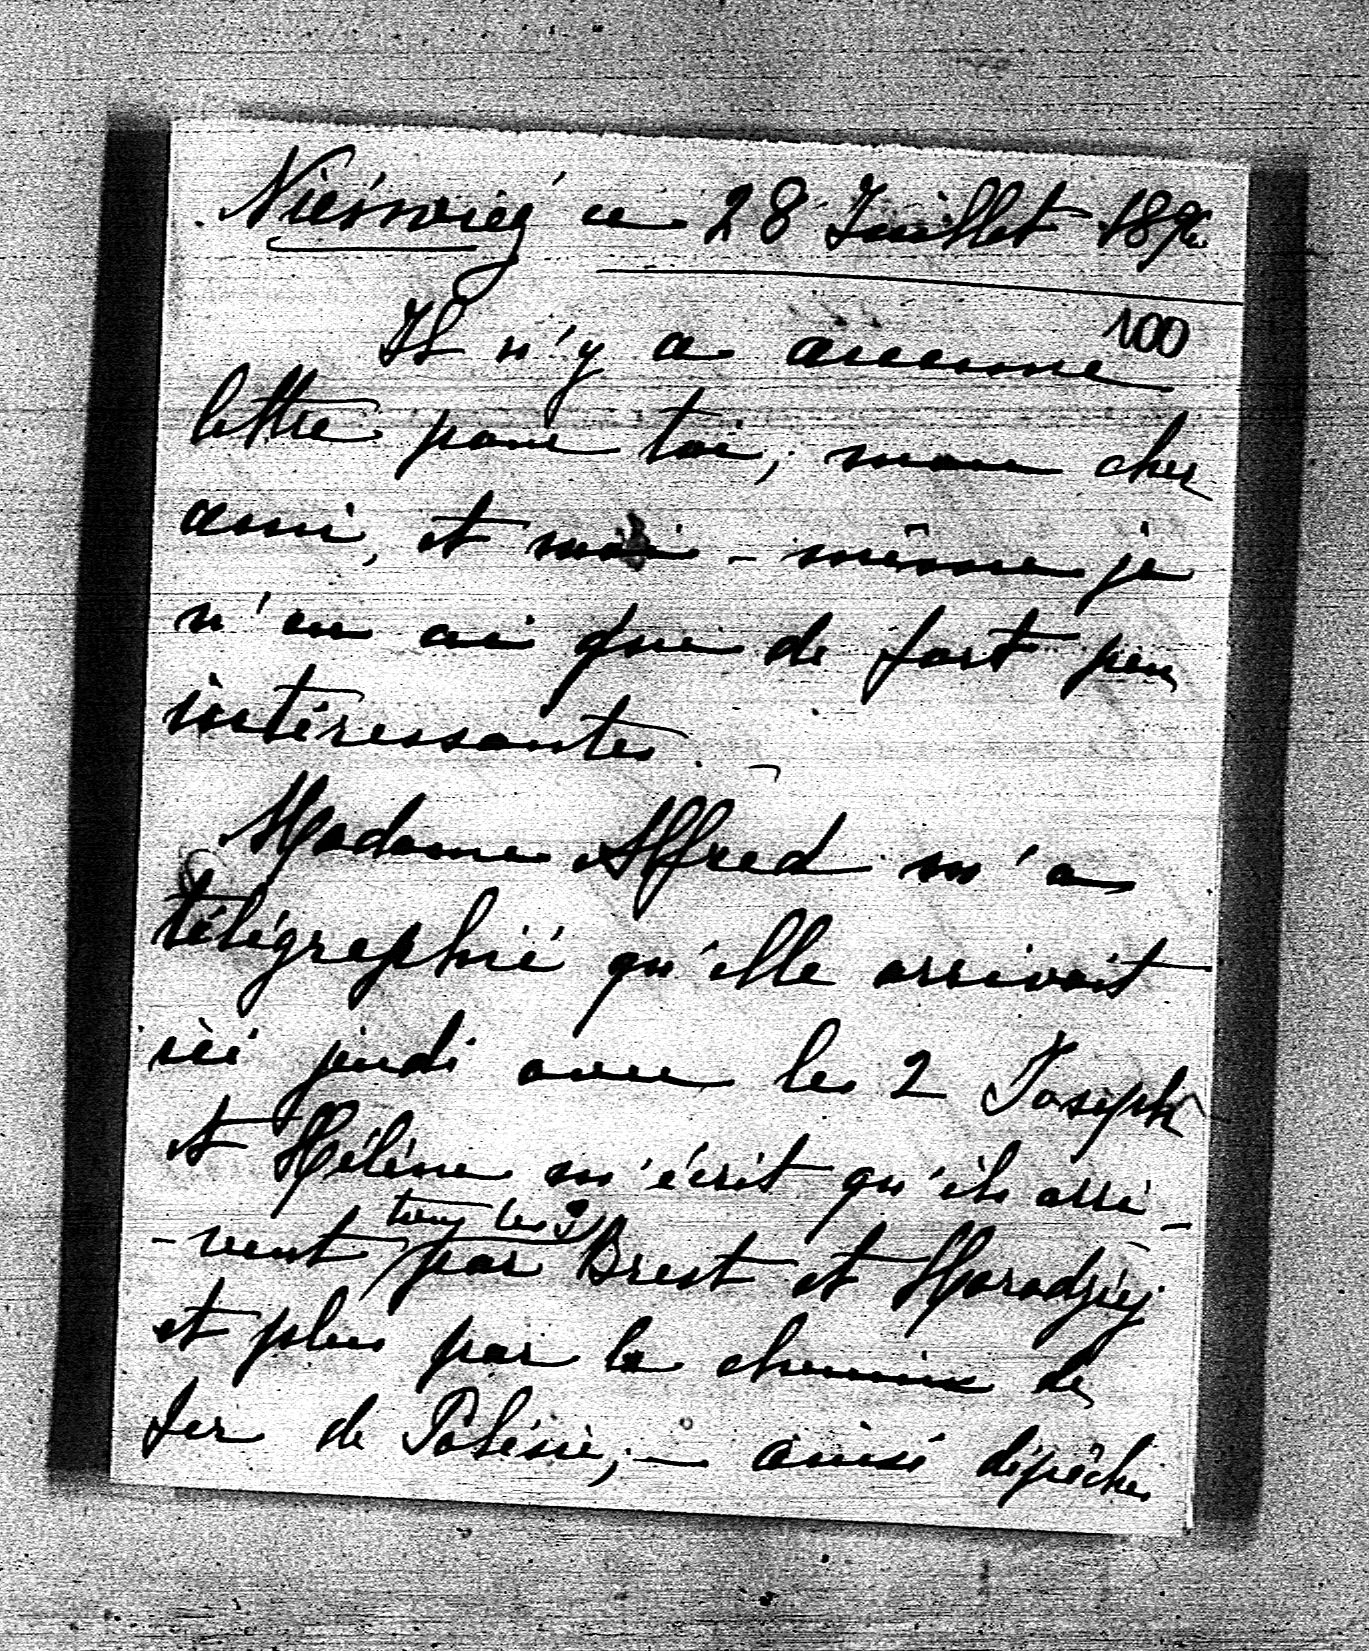 Nieśwież ce 28 Juillet 189
100
Il n'y a aucune
lettre pour toi, mon cher
ami, et moi-même je
n'en ai que de fort peu
intéressantes.
Madame Alfred m'a
télégraphié qu'elle arrivait
ici jeudi avec les 2 Joseph
et Hélène m'écrit qu'ils arri-
tous les 3
-vent par Brest et Horodziej
et plus par le chemin de
fer de Polésie; — ainsi dépêche